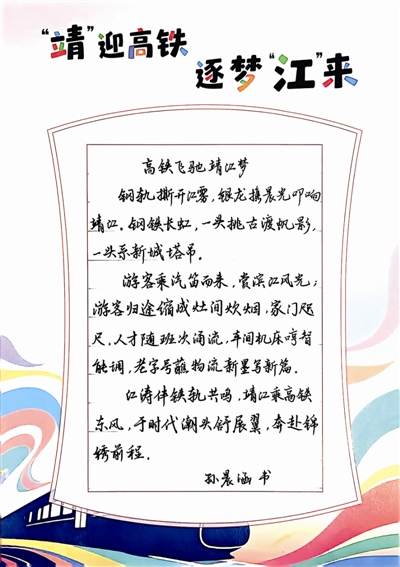 “靖”迎高铁
逐梦“江”来
高铁飞驰靖江梦
钢轨撕开江雾，银龙携晨光叩响
靖江。钢铁长虹，一头挑古渡帆影，
一头系新城塔吊。
游客乘汽笛而来，赏滨江风光；
游客归途缩成灶间炊烟，家门咫
尺，人才随班次涌流，车间机床哼智
能调，老字号蘸物流新墨写新篇。
江涛伴铁轨共鸣，靖江乘高铁
东风，于时代潮头舒展翼，奔赴锦
绣前程。
孙晨涵 书